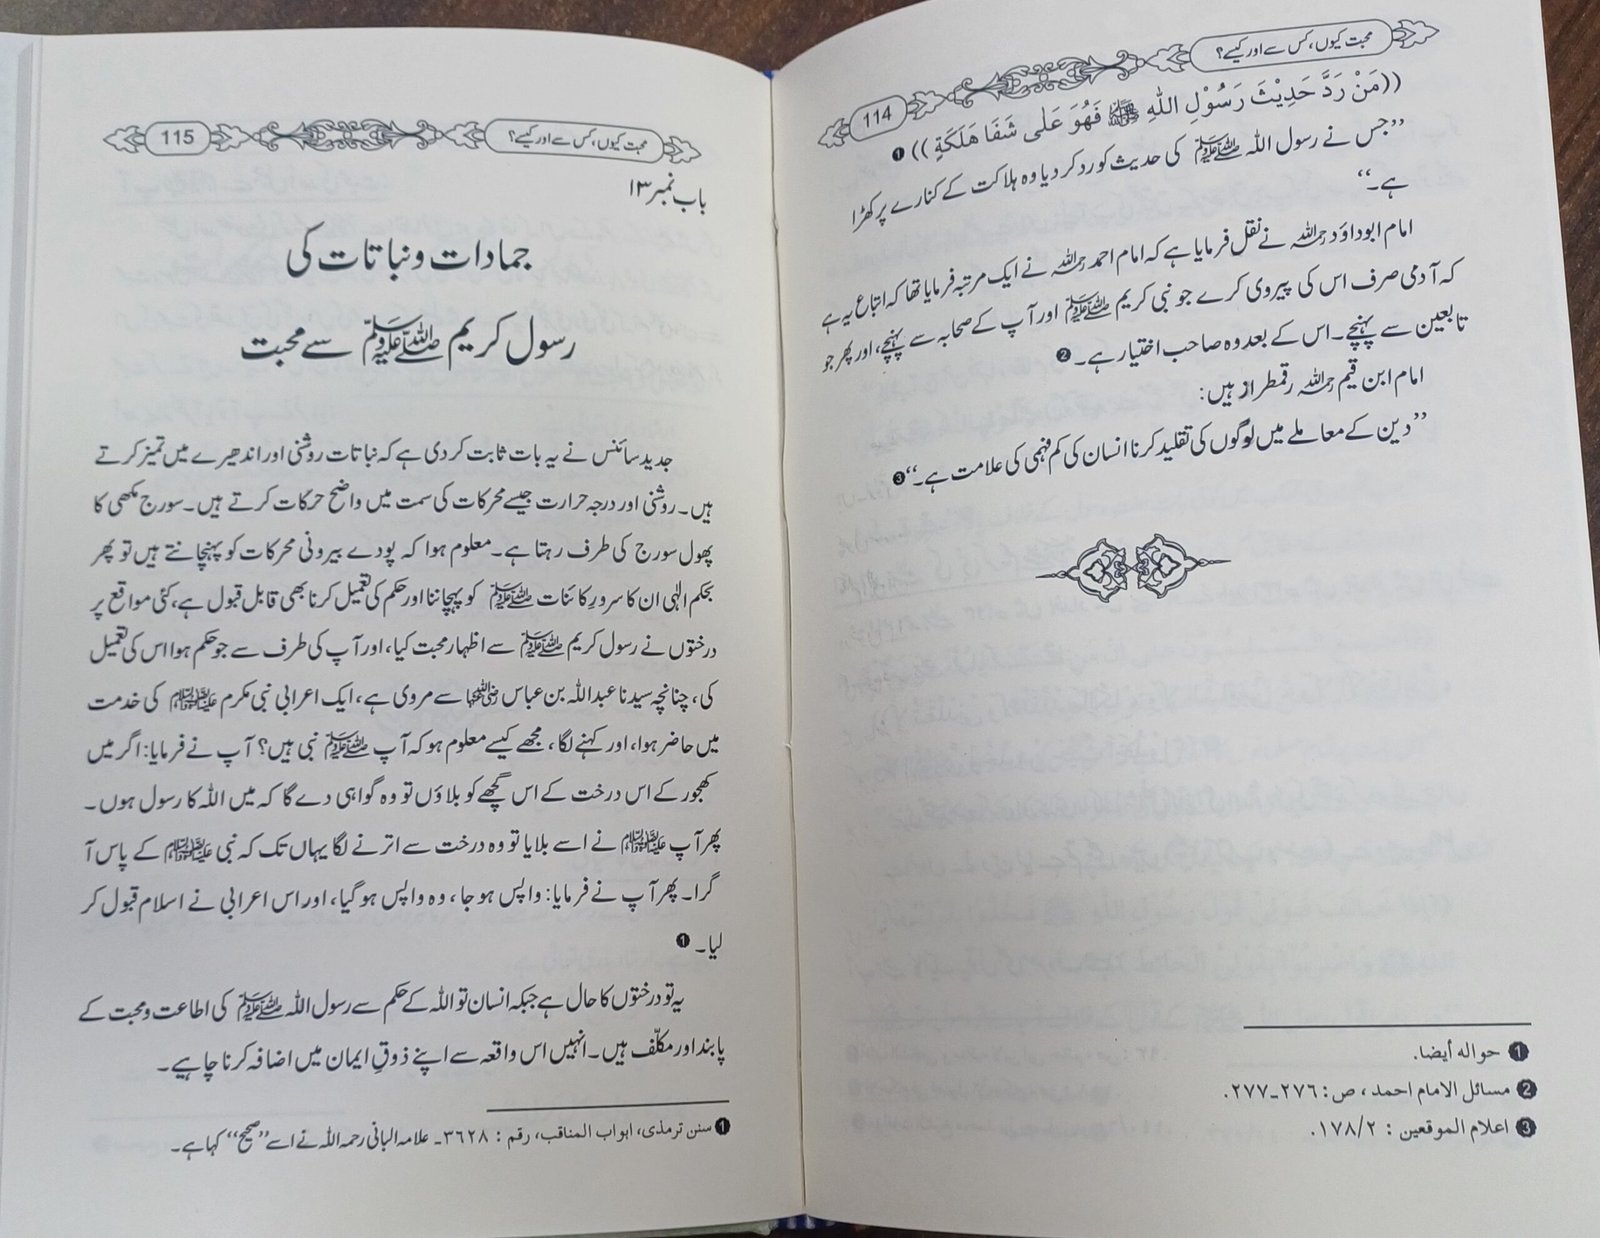 محبت کیوں، کس سے اور کیسے؟
114
((مَنْ رَدَّ حَدِيْثَ رَسُوْلِ اللّٰهِ ﷺ فَهُوَ عَلٰى شَفَا هَلَكَةٍ)) ❶
’’جس نے رسول اللہ ﷺ کی حدیث کو رد کر دیا وہ ہلاکت کے کنارے پر کھڑا
ہے۔‘‘
امام ابوداؤد رحمہ اللہ نے نقل فرمایا ہے کہ امام احمد رحمہ اللہ نے ایک مرتبہ فرمایا تھا کہ اتباع یہ ہے
کہ آدمی صرف اس کی پیروی کرے جو نبی کریم ﷺ اور آپ کے صحابہ سے پہنچے، اور پھر جو
تابعین سے پہنچے۔ اس کے بعد وہ صاحب اختیار ہے۔ ❷
امام ابن قیم رحمہ اللہ رقمطراز ہیں:
’’دین کے معاملے میں لوگوں کی تقلید کرنا انسان کی کم فہمی کی علامت ہے۔‘‘ ❸
❶ حواله أيضا.
❷ مسائل الامام احمد، ص: ٢٧٦-٢٧٧.
❸ اعلام الموقعين : ١٧٨/٢.
محبت کیوں، کس سے اور کیسے؟
115
باب نمبر ۱۳
جمادات و نباتات کی
رسول کریم ﷺ سے محبت
جدید سائنس نے یہ بات ثابت کر دی ہے کہ نباتات روشنی اور اندھیرے میں تمیز کرتے
ہیں۔ روشنی اور درجہ حرارت جیسے محرکات کی سمت میں واضح حرکات کرتے ہیں۔ سورج مکھی کا
پھول سورج کی طرف رہتا ہے۔ معلوم ہوا کہ پودے بیرونی محرکات کو پہنچانتے ہیں تو پھر
بحکم الٰہی ان کا سرورِ کائنات ﷺ کو پہچاننا اور حکم کی تعمیل کرنا بھی قابل قبول ہے، کئی مواقع پر
درختوں نے رسول کریم ﷺ سے اظہار محبت کیا، اور آپ کی طرف سے جو حکم ہوا اس کی تعمیل
کی، چنانچہ سیدنا عبداللہ بن عباس رضی اللہ عنہما سے مروی ہے، ایک اعرابی نبی مکرم ﷺ کی خدمت
میں حاضر ہوا، اور کہنے لگا، مجھے کیسے معلوم ہو کہ آپ ﷺ نبی ہیں؟ آپ نے فرمایا: اگر میں
کھجور کے اس درخت کے اس گچھے کو بلاؤں تو وہ گواہی دے گا کہ میں اللہ کا رسول ہوں۔
پھر آپ ﷺ نے اسے بلایا تو وہ درخت سے اترنے لگا یہاں تک کہ نبی ﷺ کے پاس آ
گرا۔ پھر آپ نے فرمایا: واپس ہو جا، وہ واپس ہو گیا، اور اس اعرابی نے اسلام قبول کر
لیا۔ ❶
یہ تو درختوں کا حال ہے جبکہ انسان تو اللہ کے حکم سے رسول اللہ ﷺ کی اطاعت و محبت کے
پابند اور مکلّف ہیں۔ انہیں اس واقعہ سے اپنے ذوقِ ایمان میں اضافہ کرنا چاہیے۔
❶ سنن ترمذی، ابواب المناقب، رقم : ٣٦٢٨۔ علامہ البانی رحمہ اللہ نے اسے ’’صحیح‘‘ کہا ہے۔